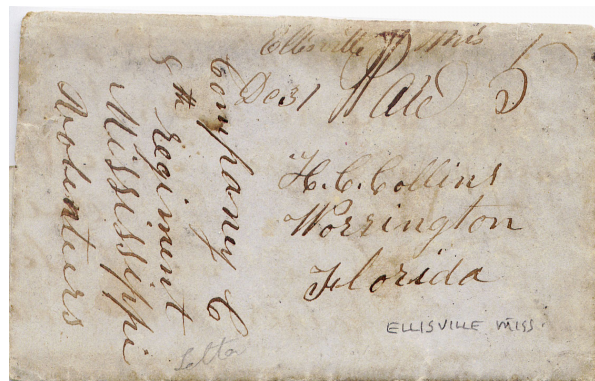 Ellisville Mis
De 31 Paid 5
H. C. Collins
Worrington
Florida
Company C
8 th regiment
Mississippi
Volentiers
ELLISVILLE MISS.